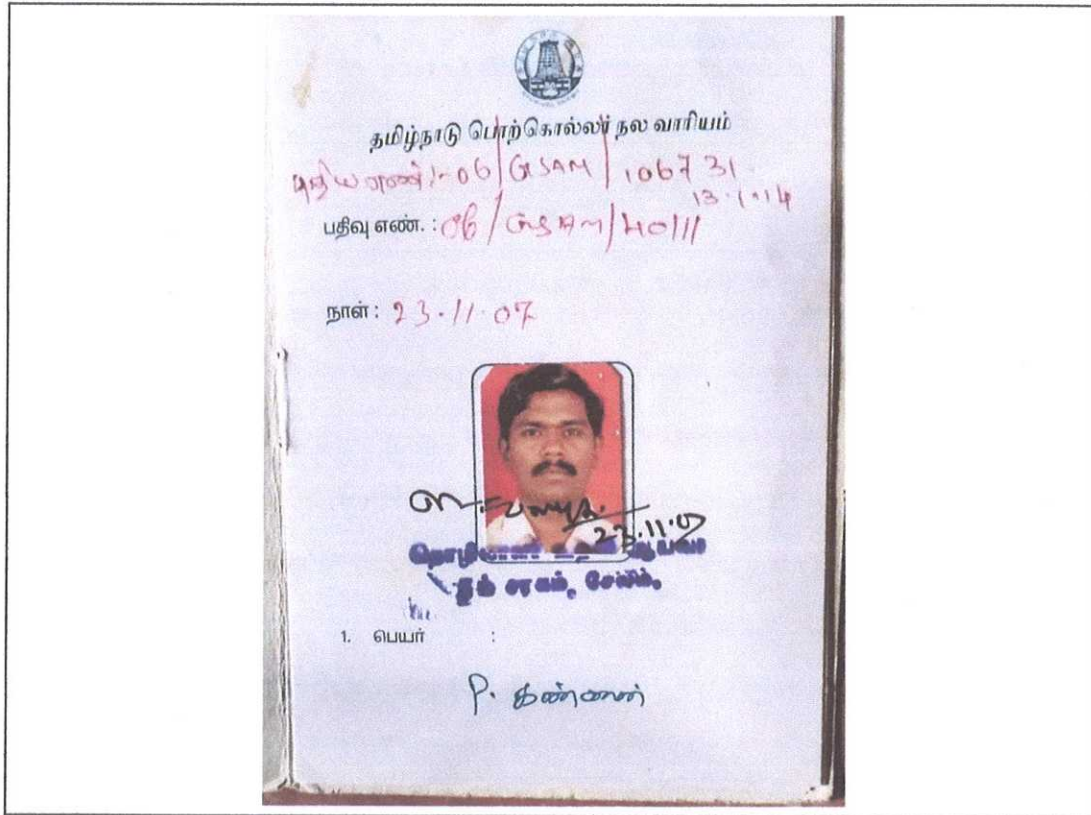 தமிழ்நாடு பொற்கொல்லர் நல வாரியம்
புதிய எண்:-06/GSAM/106731
13.1.14
பதிவு எண். : 06/GSAM/40111
நாள் : 23.11.07
23.11.07
தொழிலாளர் உதவி ஆய்வர்
சரகம், சேலம்.
1. பெயர் :
P. கண்ணன்